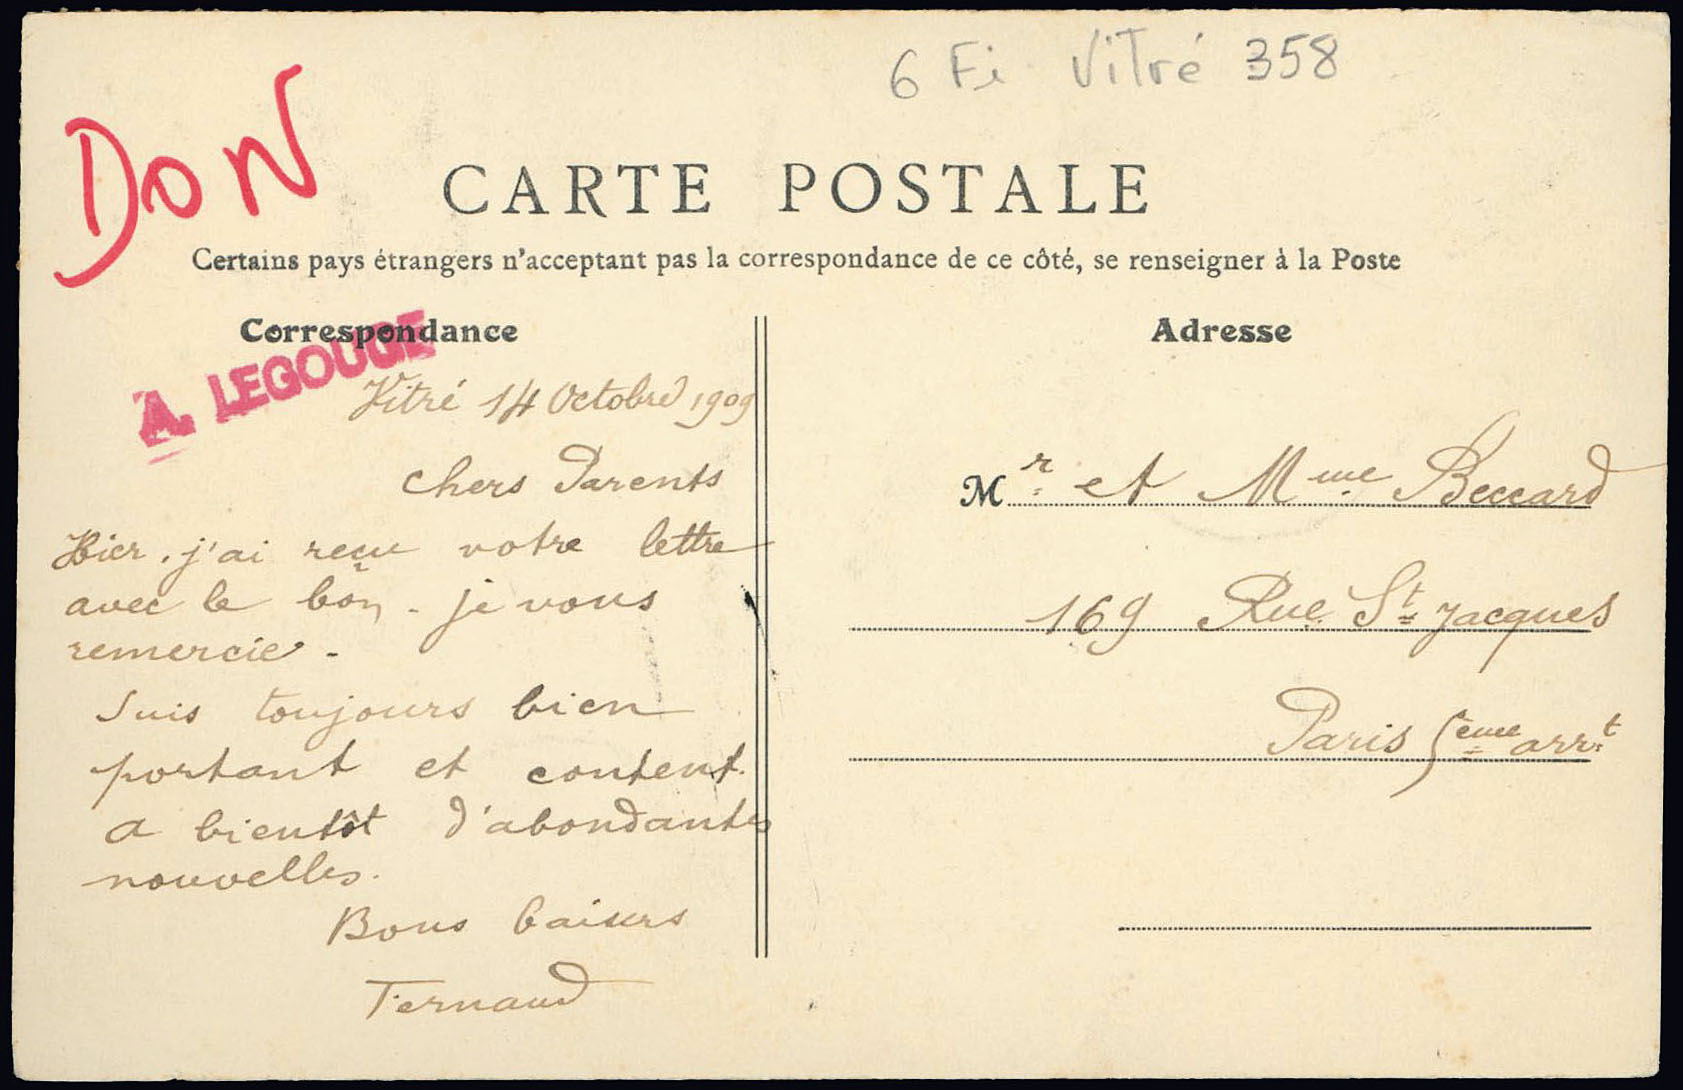 6 Fi Vitré 358
DON
CARTE POSTALE
Certains pays étrangers n'acceptant pas la correspondance de ce côté, se renseigner à la Poste
Correspondance
A. LEGOUGE
Vitré 14 Octobre 1909
Chers Parents
Hier, j'ai reçu votre lettre
avec le bon - je vous
remercie -
Suis toujours bien
portant et content.
a bientôt d'abondantes
nouvelles.
Bons baisers
Fernand
Adresse
Mr et Mme Beccard
169 Rue St Jacques
Paris 5eme arrt